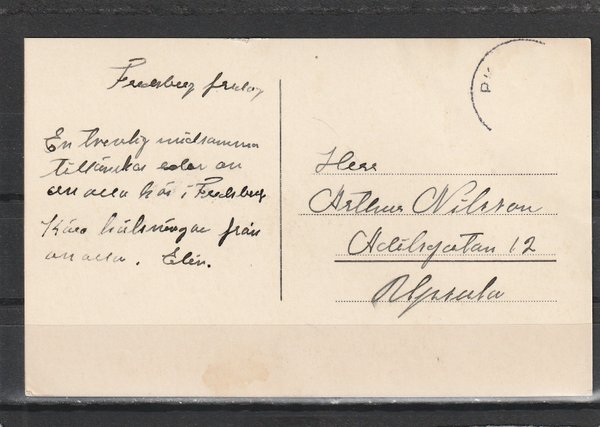 Fredsberg fredag
En trevlig midsomma
tillönskas eder an
an alla här i Fredsberg
Kära hälsningar från
an alla. Elin.
Herr
Arthur Nilsson
Adilsgatan 12
Upsala